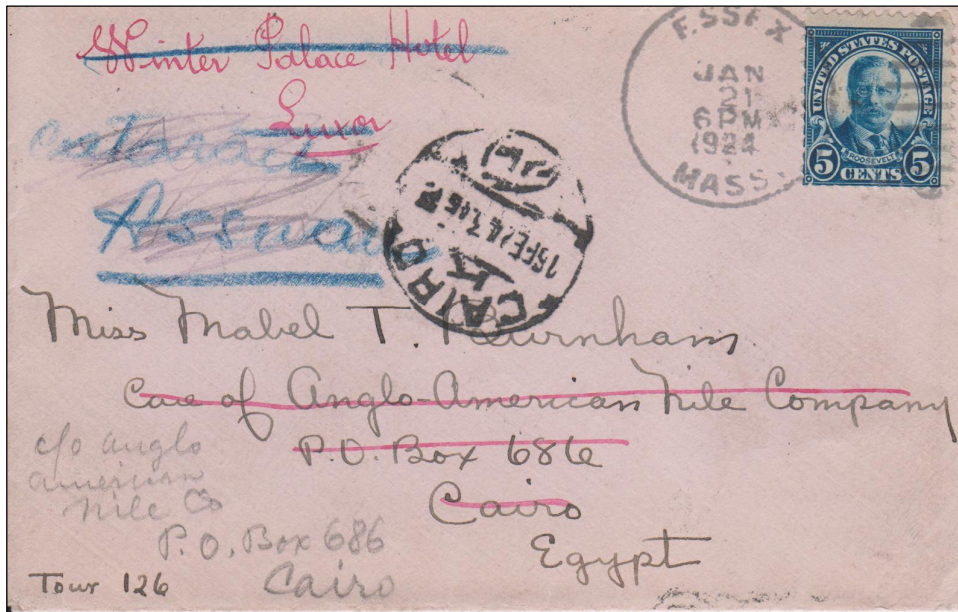 Winter Palace Hotel
Luxor
Cataract
Asswan
ESSEX
JAN
21
6 PM
1924
MASS.
UNITED STATES POSTAGE
ROOSEVELT
5 CENTS 5
CAIRO
15 FE 24. 7.45 P
Miss Mabel T. Burnham
Care of Anglo-American Nile Company
P.O. Box 686
Cairo
Egypt
c/o Anglo
American
Nile Co
P.O. Box 686
Cairo
Tour 126